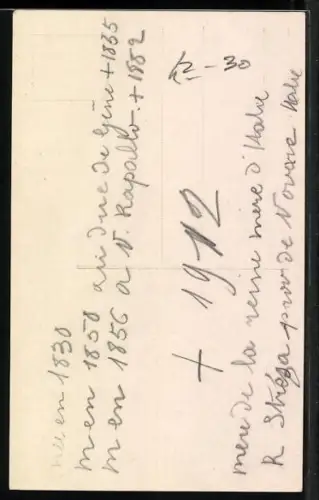 née en 1830
m en 1850 au duc de Gêne + 1855
m en 1856 a N. Rapallo. + 1882
72 - 30
+ 1912
mere de la reine mere d'Italie
R Stréza prov de Novare Italie